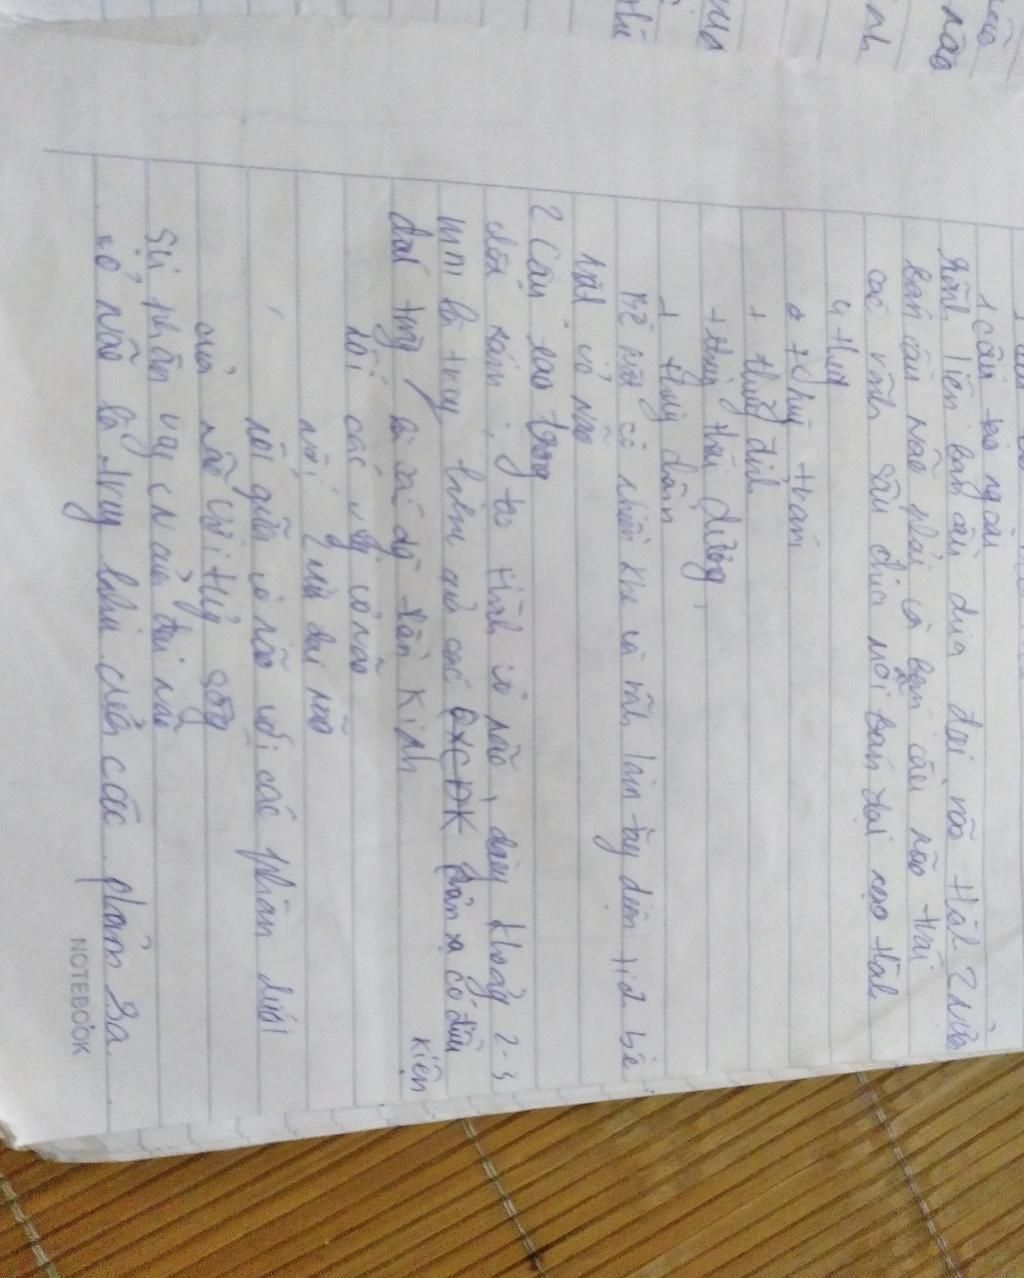 1 cấu tạo ngoài
Rãnh liên bán cầu chia đại não thành 2 nửa
bán cầu não phải và bán cầu não trái
các rãnh sâu chia mỗi bán đại não thành
4 thuỳ
+ thuỳ trán
+ thuỳ đỉnh
+ thuỳ thái dương
+ thuỳ chẩm
Bề mặt có nhiều khe và rãnh làm tăng diện tích bề
mặt vỏ não
2 Cấu tạo trong
chất xám: tạo thành vỏ não, dày khoảng 2-3
mm là trung khu của các PXCĐK phản xạ có điều
kiện
chất trắng là các dây thần kinh
nối các vùng vỏ não
nối 2 nửa đại não
nối giữa vỏ não với các phần dưới
của não với tuỷ sống
Sự phân vùng CN của đại não
vỏ não là trung khu của các phản xạ.
NOTEBOOK